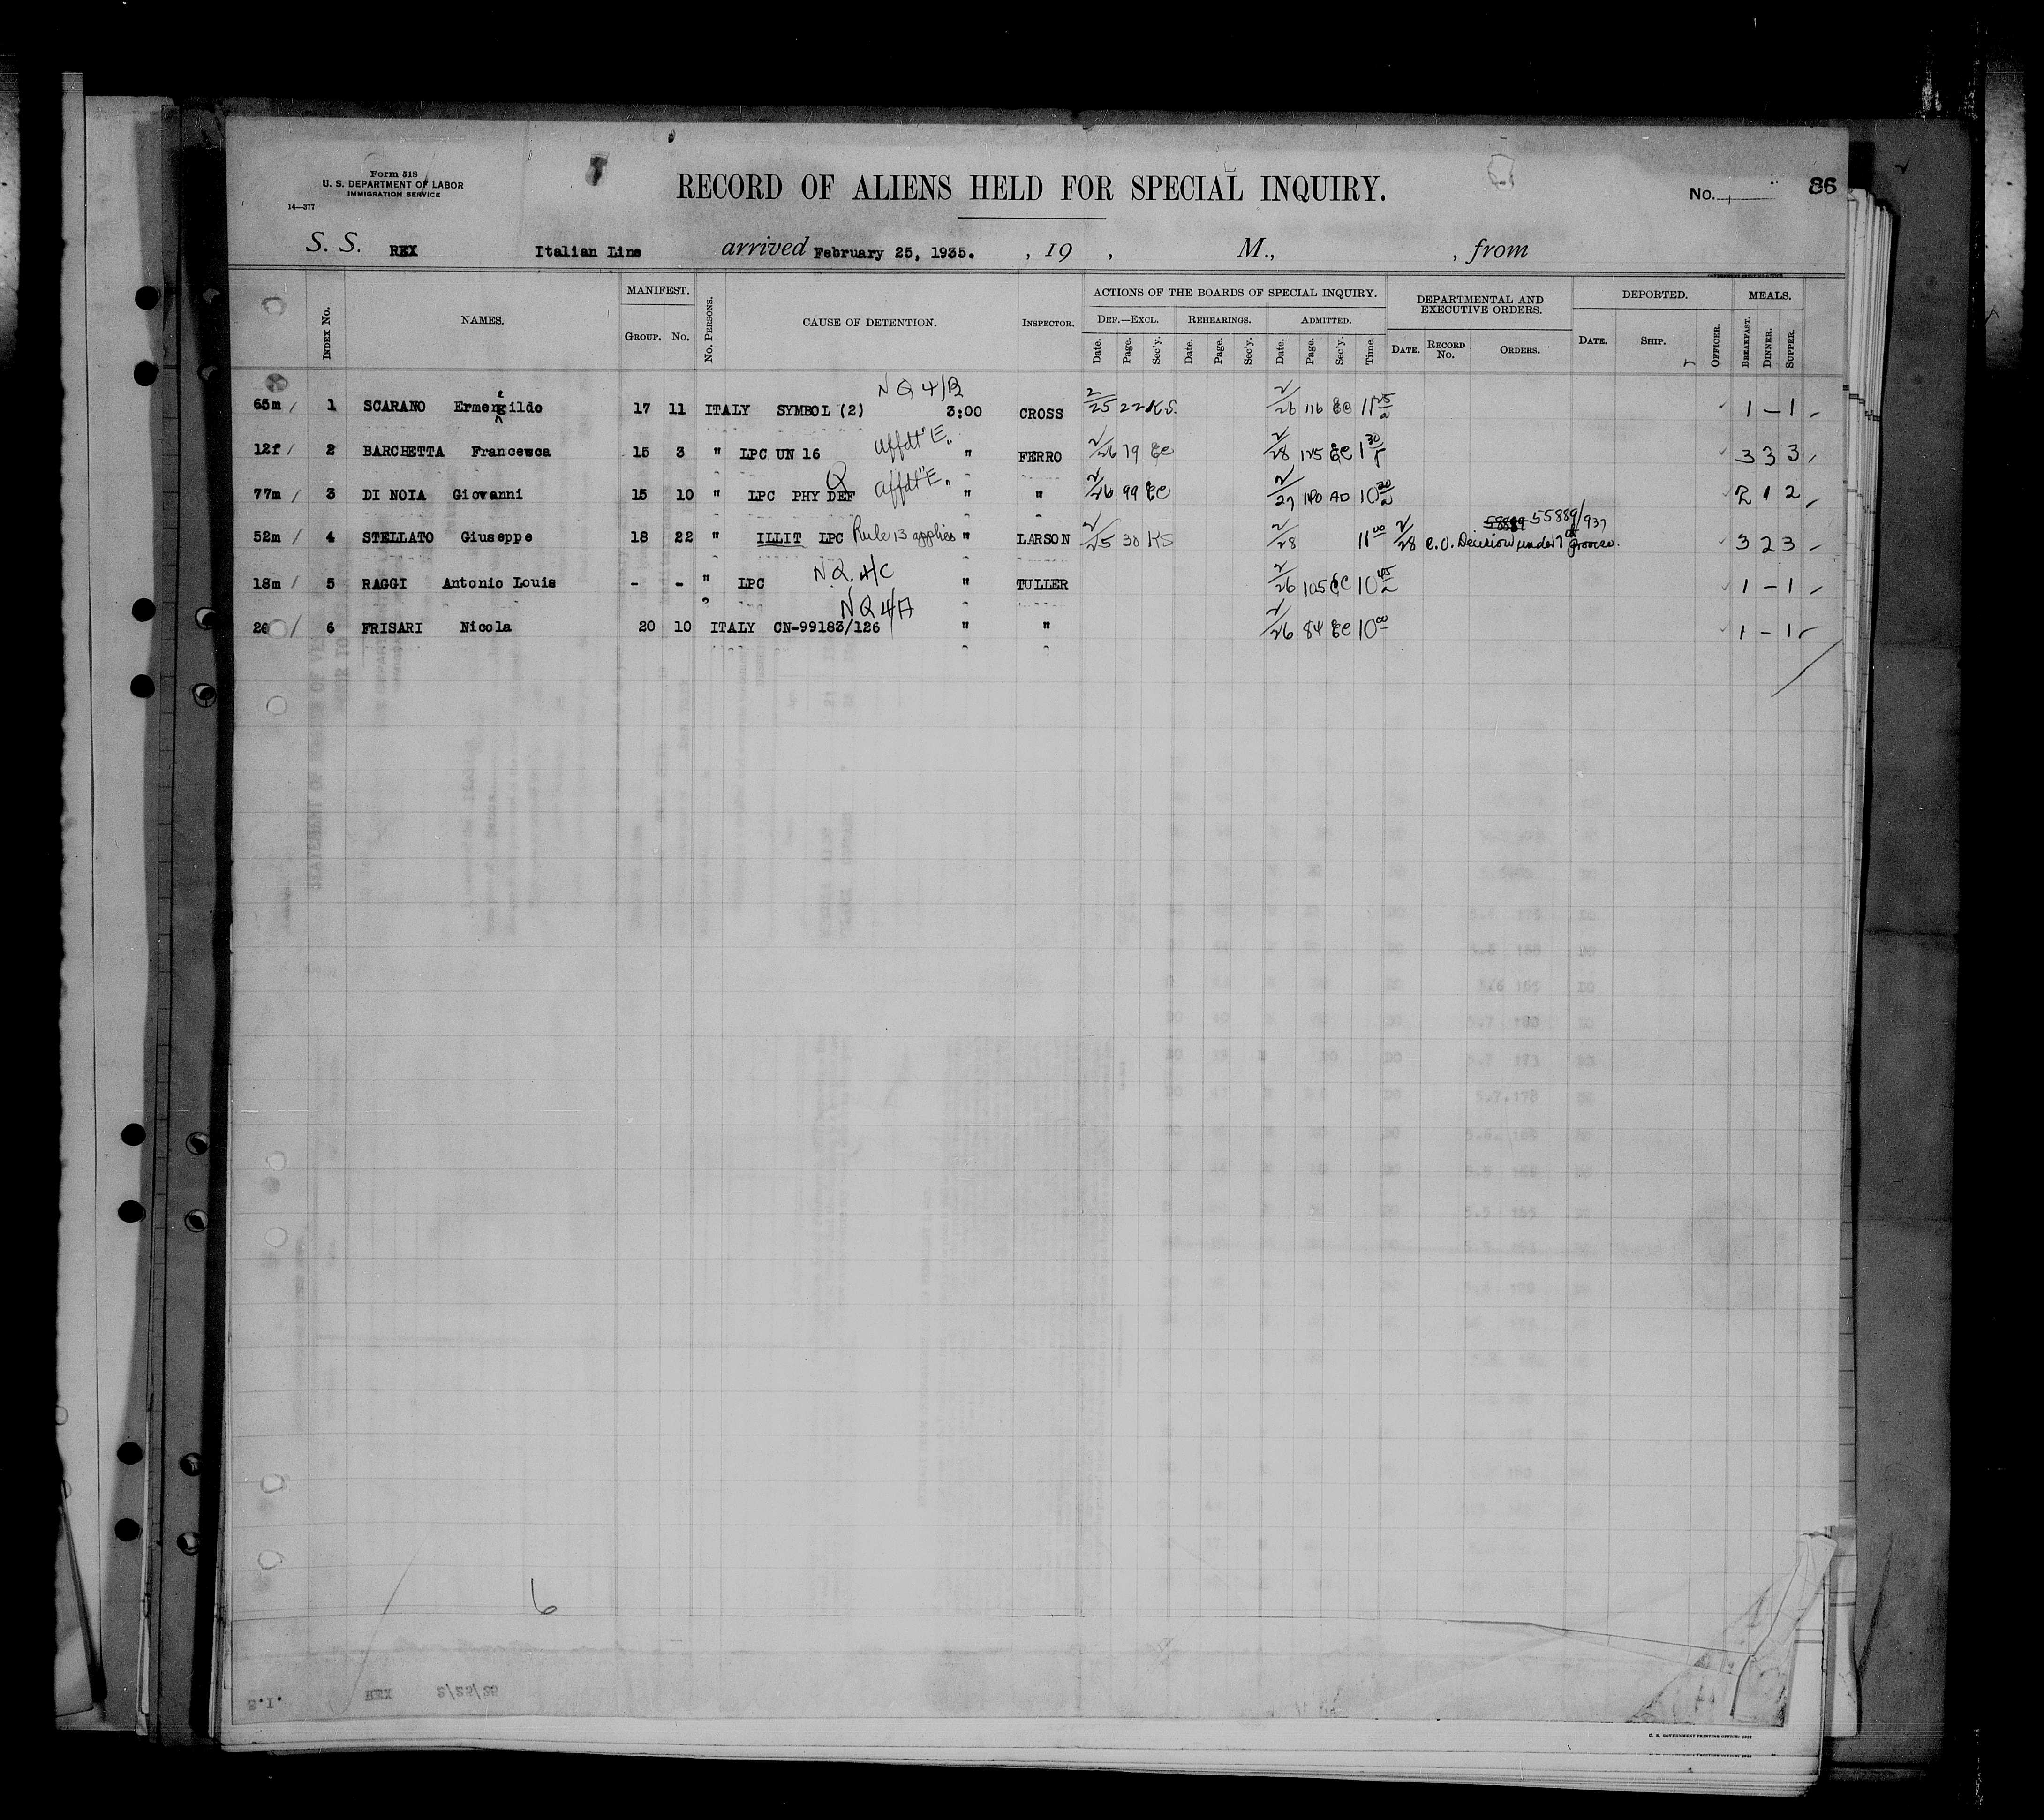 Form 518
U. S. DEPARTMENT OF LABOR
IMMIGRATION SERVICE
14—377
RECORD OF ALIENS HELD FOR SPECIAL INQUIRY.
No.
86
S. S. REX Italian Line arrived February 25, 1935. , 19 , M., , from
INDEX No. NAMES. MANIFEST. GROUP. No. No. PERSONS. CAUSE OF DETENTION. INSPECTOR. ACTIONS OF THE BOARDS OF SPECIAL INQUIRY. DEF.—EXCL. Date. Page. Sec'y. REHEARINGS. Date. Page. Sec'y. ADMITTED. Date. Page. Sec'y. Time. DEPARTMENTAL AND EXECUTIVE ORDERS. DATE. RECORD No. ORDERS. DEPORTED. DATE. SHIP. OFFICER. MEALS. BREAKFAST. DINNER. SUPPER.
NQ 4/B
65m / 1 SCARANO Ermenegildo 17 11 ITALY SYMBOL (2) 3:00 CROSS 2/25 22 KS. 2/26 116 EC 11 25/a 1 – 1
12f / 2 BARCHETTA Francesca 15 3 " LPC UN 16 affdt "E" " FERRO 2/26 79 EC 2/28 125 EC 1 30/P 3 3 3
77m / 3 DI NOIA Giovanni 15 10 " LPC PHY DEF Q affdt "E" " " 2/26 99 EC 2/27 AD 10 20/a 2 1 2
55889/937
52m / 4 STELLATO Giuseppe 18 22 " ILLIT LPC Rule 13 applies " LARSON 2/25 30 KS 2/28 11 00 2/28 C.O. Decision under 7th proviso. 3 2 3
NQ 4/C
18m / 5 RAGGI Antonio Louis - - " LPC " TULLER 2/26 105 EC 10 45/a 1 – 1
NQ 4/A
26 / 6 FRISARI Nicola 20 10 ITALY CN-99183/126 " " 2/26 84 EC 10 00 1 – 1
6
S.I. REX 2/25/35
U. S. GOVERNMENT PRINTING OFFICE: 1932